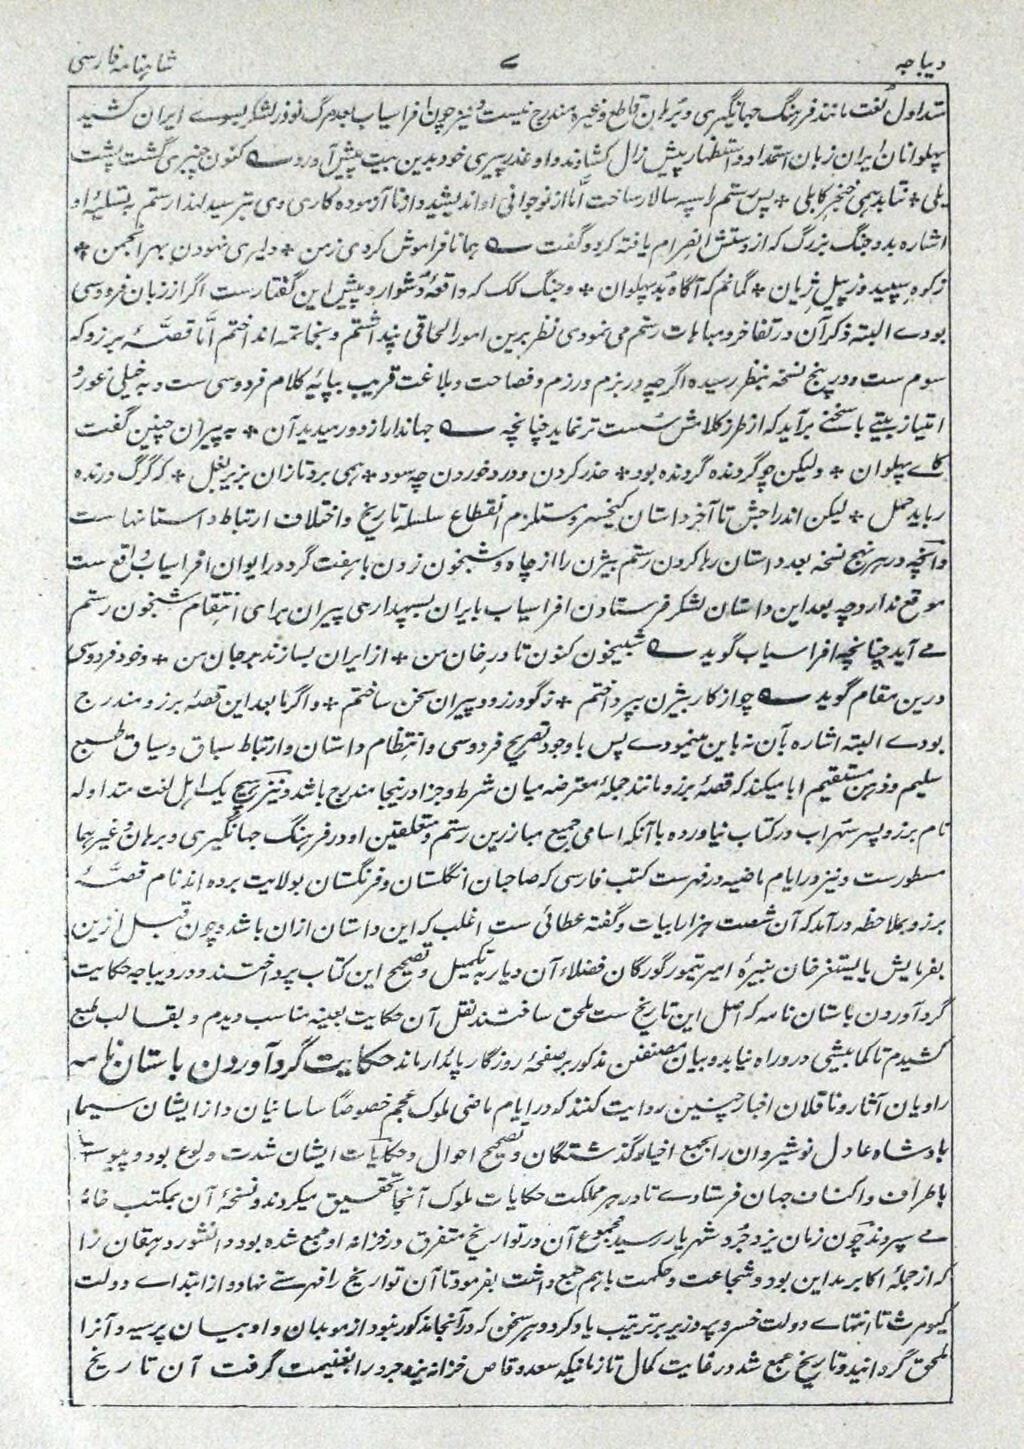 دیباجه ے شاہنامۂ فارسی
متداول لغت مانند فرہنگ جہانگیری و برہان قاطع و غیرہ مندرج نیست و نیز چون افراسیاب بعد مرگ نوذر لشکر بسوے ایران کشید
پہلوانان ایران زبان استمداد و استظہار پیش زال کشادند و او عذر پیری خود بدین بیت پیش آورد ؎ کنون چنبری گشت پشت
یلی * نتابد ہمی خنجر کابلی * پس رستم را سپہ سالار ساخت امّا از نوجوانی او اندیشید و از نا آزمودہ کاری وی میترسید لہذا رستم بتسلیۂ او
اشارہ بدو جنگ بزرگ کہ از دستش انصرام یافتہ کرد و گفت ؎ ہمانا فراموش کردی ز من * دلیری نمودن بہر انجمن *
ز کوہ سپید و ز پیل ژیان * گمانم کہ آگاہ بد پہلوان * و جنگ کک کہ واقعۂ دشوار و پیش این گفتارست اگر از زبان فردوسی
بودے البتہ ذکر آن در تفاخر و مباہات رستم می نمودی نظر برین امور الحاقی پنداشتم و بخاتمہ انداختم امّا قصّۂ برزو کہ
سوم ست و در پنج نسخہ بنظر رسیدہ اگرچہ در بزم و رزم و فصاحت و بلاغت قریب بپایۂ کلام فردوسی ست و بہ خیلی غور و
امتیاز بیتے یا سخنے برآید کہ از طرز کلامش سست تر نماید چنانچہ ؎ جہاندار از دور میدید آن * بہ پیران چنین گفت
کاے پہلوان * ولیکن چو گردندہ گردندہ بود * حذر کردن و درد خوردن چہ سود * ہمی برد تازان بزیر بغل * کہ گرگ درندہ
رباید حمل * لیکن اندراجش تا آخر داستان کیخسرو مستلزم انقطاع سلسلۂ تاریخ و اختلاف ارتباط داستانہاست
و آنچہ در ہر پنج نسخہ بعد داستان رہا کردن رستم بیژن را از چاہ و شبخون زدن با ہفت گرد در ایوان افراسیاب واقع ست
موقع ندارد چہ بعد این داستان لشکر فرستادن افراسیاب بایران بسپہداری پیران برای انتقام شبخون رستم
مے آید چنانچہ افراسیاب گوید ؎ شبیخون کنون تا در خان من * از ایران بسازند بر جان من * و خود فردوسی
درین مقام گوید ؎ چو از کار بیژن بپرداختم * ز گودرز و پیران سخن ساختم * و اگر ما بعد این قصّۂ برزو مندرج
بودے البتہ اشارہ بآن نہ باین مینمودے پس با وجود تصریح فردوسی و انتظام داستان و ارتباط سباق و سیاق طبع
سلیم و ذہن مستقیم ابا میکند کہ قصّۂ برزو مانند جملۂ معترضہ میان شرط و جزا درینجا مندرج باشد و نیز ہیچ یک اہل لغت متداولہ
نام برزو پسر سہراب در کتاب نیاوردہ با آنکہ اسامی جمیع مبارزین رستم و متعلقین او در فرہنگ جہانگیری و برہان و غیرہا
مسطورست و نیز در ایام ماضیہ در فہرست کتب فارسی کہ صاحبان انگلستان و فرنگستان بولایت بردہ اند نام قصّۂ
برزو بملاحظہ درآمد کہ آن شصت ہزار ابیات و گفتہ عطائی ست اغلب کہ این داستان ازان باشد و چون قبل ازین
بفرمایش بایسنغر خان نبیرۂ امیر تیمور گورگان فضلاء آن دیار بہ تکمیل و تصحیح این کتاب پرداختند و در دیباجہ حکایت
گرد آوردن باستان نامہ کہ اصل این تاریخ ست ملحق ساختند نقل آن حکایت بعینہ مناسب دیدم و بقالب طبع
کشیدم تا کمابیشی در و راہ نیابد و بیان مصنفین مذکور بر صفحۂ روزگار پایدار ماند حکایت گرد آوردن باستان نامہ
راویان آثار و ناقلان اخبار چنین روایت کنند کہ در ایام ماضی ملوک عجم خصوصاً ساسانیان و از ایشان سیما
بادشاہ عادل نوشیروان را بجمع اخبار گذشتگان و تصحیح احوال و حکایات ایشان شدت ولوع بود و پیوستہ
باطراف و اکناف جہان فرستادے تا در ہر مملکت حکایات ملوک آنجا تحقیق میکردند و نسخۂ آن بمکتب خانہ
مے سپردند چون زمان یزدجرد شہریار رسید مجموع آن در تواریخ متفرق در خزانہ او جمع شدہ بود دانشور دہقان را
کہ از جملۂ اکابر مداین بود و شجاعت و حکمت باہم جمع داشت بفرمود تا آن تواریخ را فہرستے نہاد و از ابتداے دولت
کیومرث تا انتہاے دولت خسرو پرویز بر ترتیب یاد کرد و ہر سخن کہ در آنجا مذکور نبود از موبدان و اوبیان پرسید و آنرا
ملحق گردانید و تاریخے جمع شد در غایت کمال تا زمانیکہ سعد وقاص خزانہ یزدجرد را بغنیمت گرفت آن تاریخ